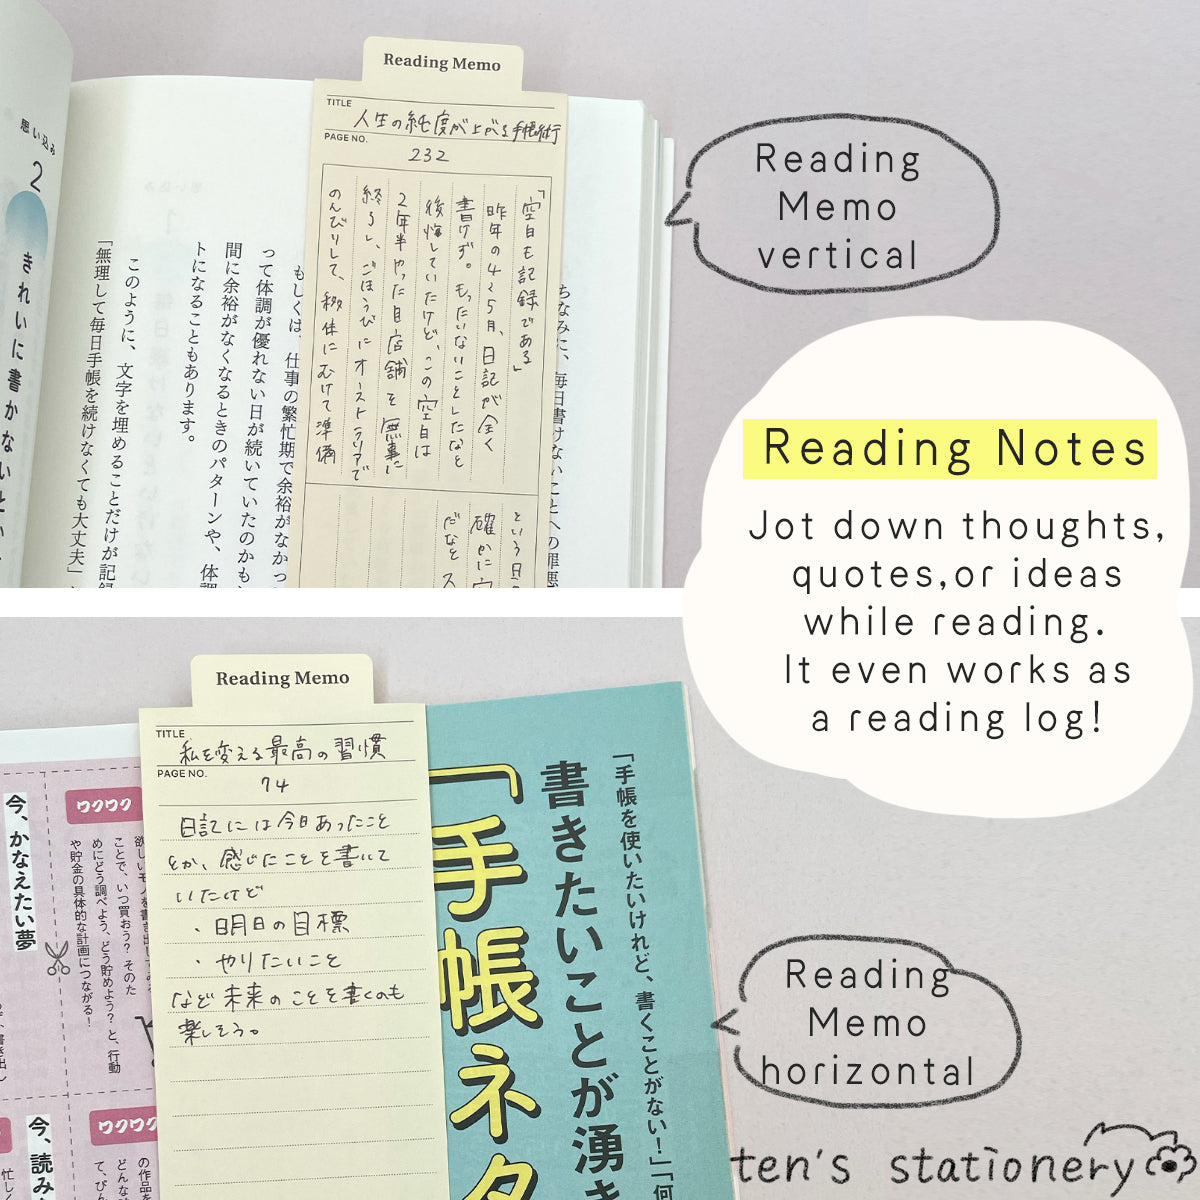 Reading Memo
TITLE
人生の純度が上がる手帳術
PAGE NO.
232
「空白も記録である」
昨年の4〜5月、日記が全く
書けず。もったいないことしたなと
後悔していたけど、この空白は
2年半やった目店舗を無事に
終らし、ごほうびにオーストラリアで
のんびりして、移住にむけて準備
という日
確かに
だなと
思い込み
2
きれいに書かないといけ
ちなみに、毎日書けないことへの罪悪
もしくは、仕事の繁忙期で余裕がなかっ
って体調が優れない日が続いていたのかも
間に余裕がなくなるときのパターンや、体調
トになることもあります。
このように、文字を埋めることだけが記録
「無理して毎日手帳を続けなくても大丈夫」
Reading
Memo
vertical
Reading Notes
Jot down thoughts,
quotes,or ideas
while reading.
It even works as
a reading log!
Reading Memo
TITLE
私を変える最高の習慣
PAGE NO.
74
日記には今日あったこと
とか、感じたことを書いて
いたけど
・明日の目標
・やりたいこと
など未来のことを書くのも
楽しそう。
「手帳を使いたいけれど、書くことがない！」「何
書きたいことが湧き
「手帳ネタ
ワクワク
今、かなえたい夢
欲しいモノを書き出してみる
ことで、いつ買おう？ そのた
めにどう調べよう、どう貯めよう？ と、行動
や貯金の具体的な計画につながる！
ワクワク
今、読み
の作品を
どんな
て、ぴん
忙しく
Reading
Memo
horizontal
ten's stationery